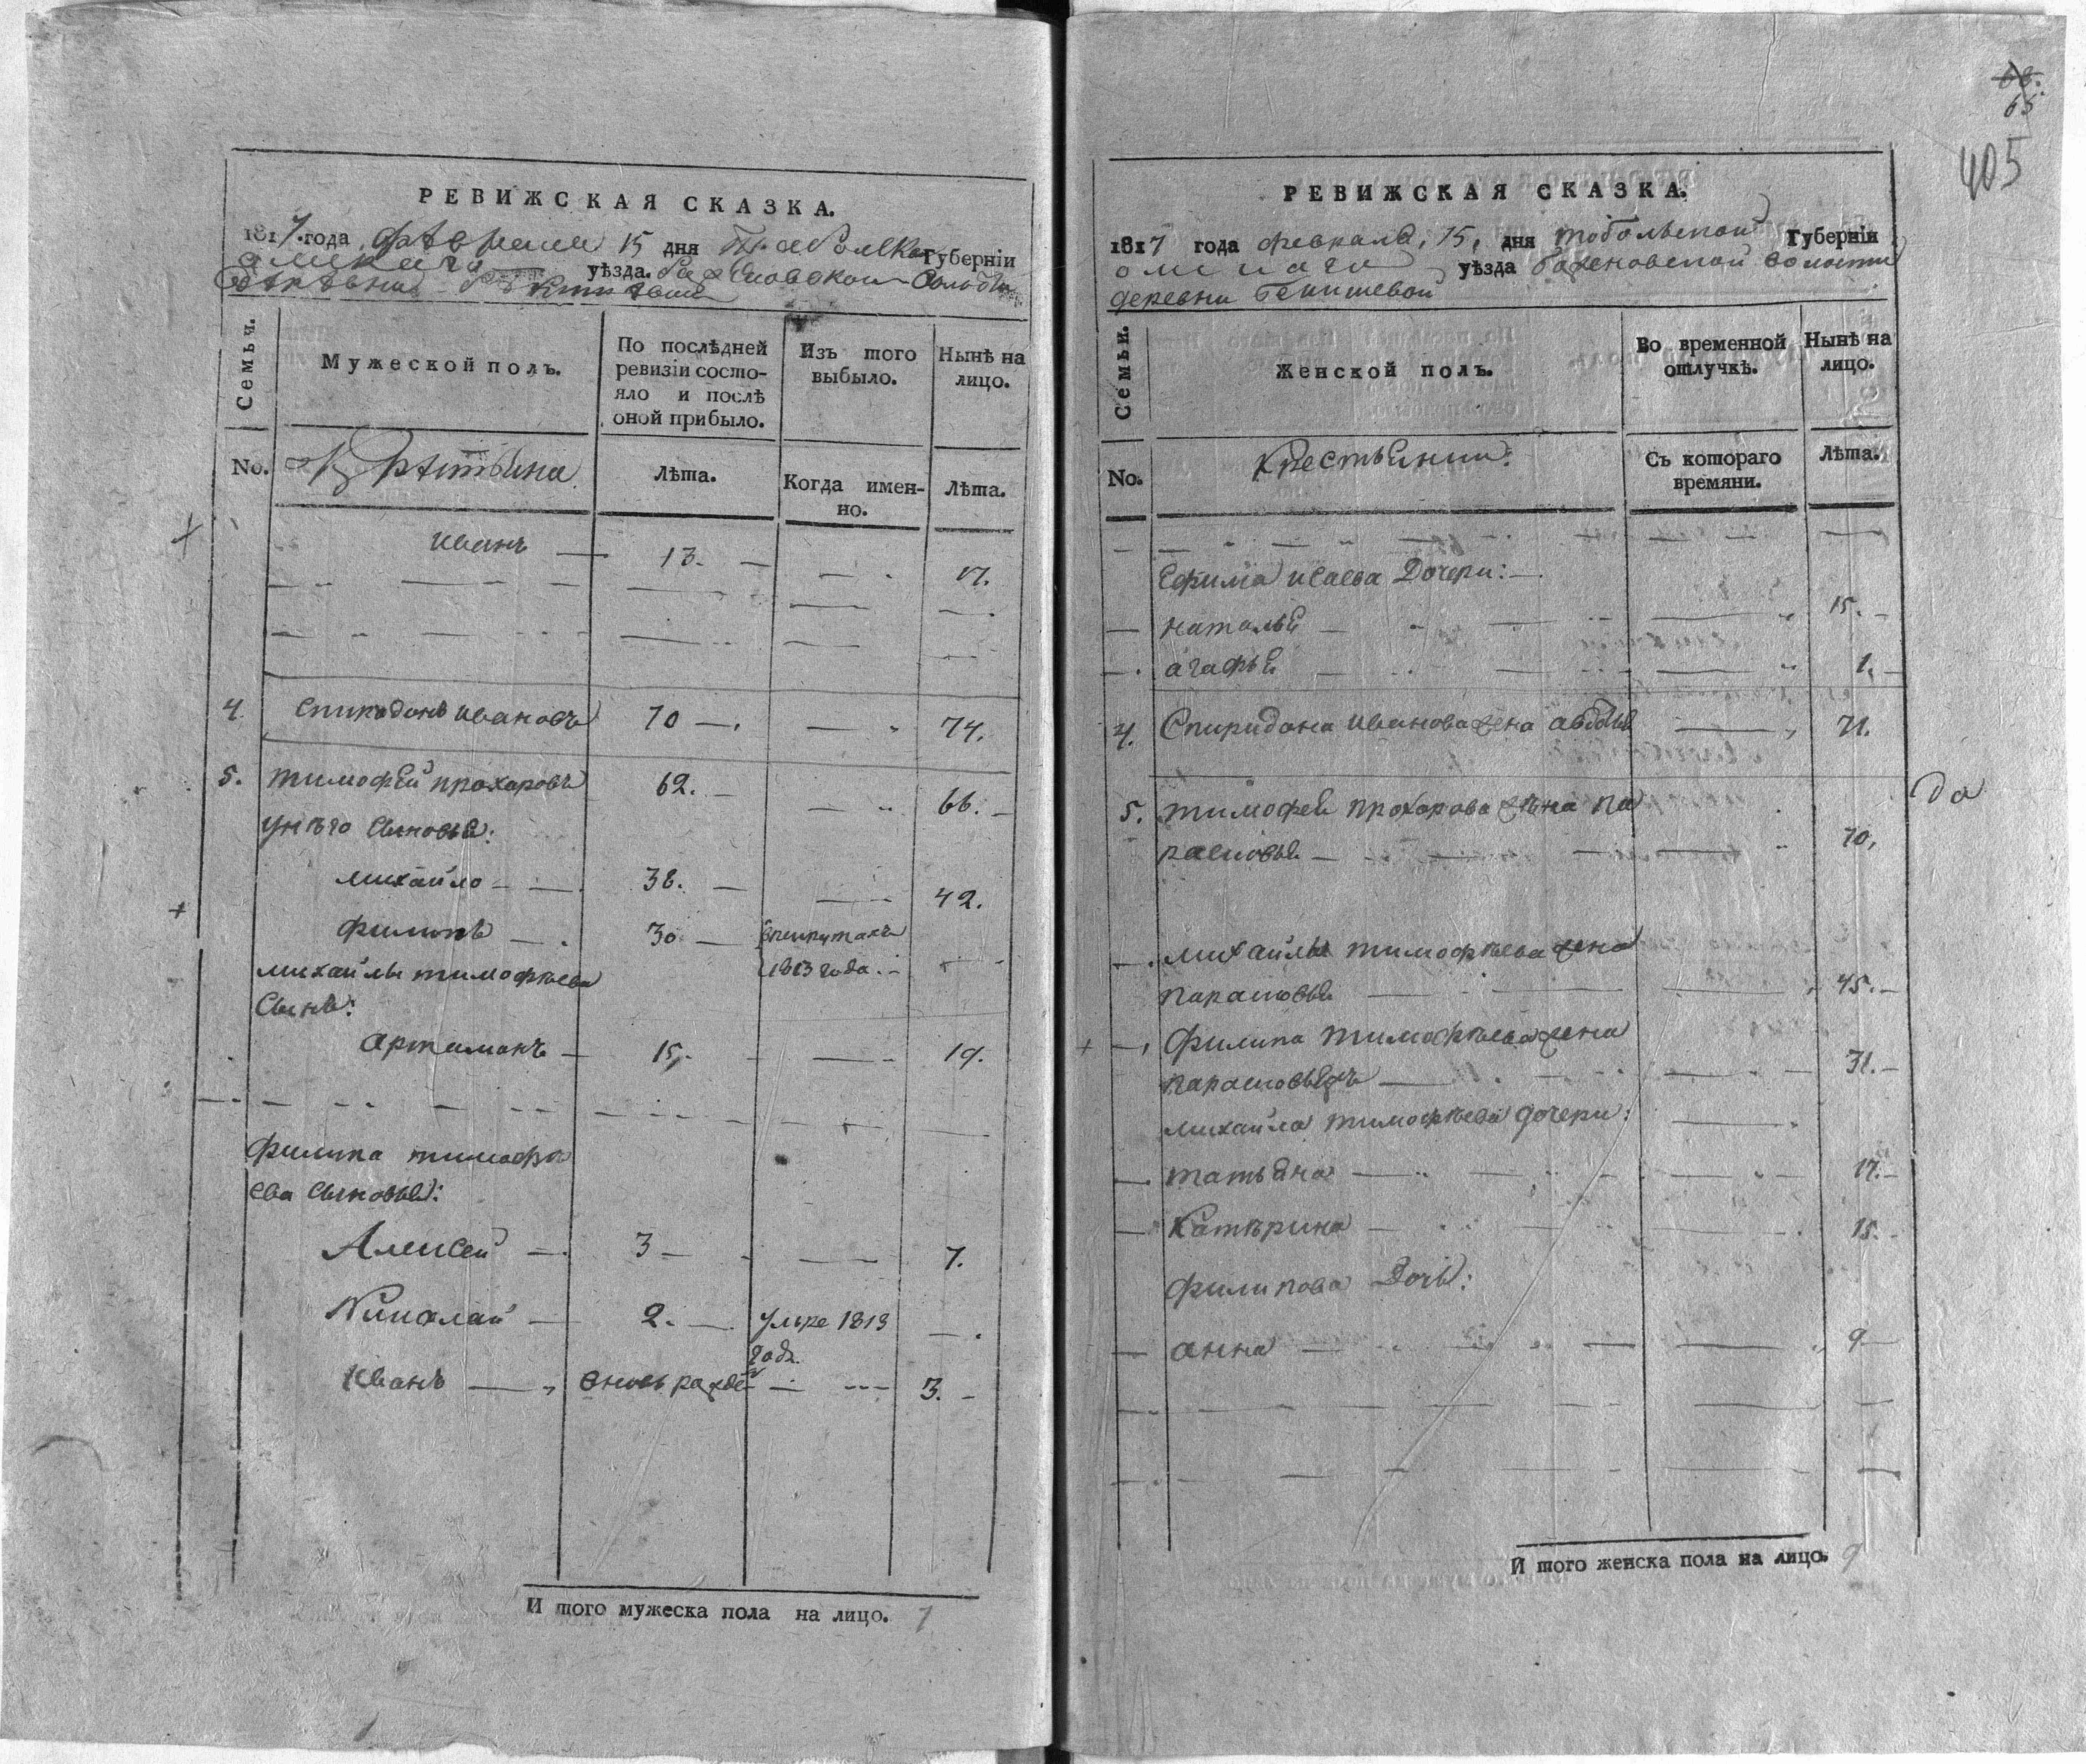 РЕВИЖСКАЯ СКАЗКА.
1817. года февраля 15 дня Тобольской Губерніи
омскаго уѣзда. Баженовской волости
деревни
Семьи.
Мужеской полъ.
По послѣдней ревизіи состо-
яло и послѣ
оной прибыло.
Изъ того
выбыло.
Нынѣ на
лицо.
No.
Крѣстьяна
Лѣта.
Когда имен-
но.
Лѣта.
Иванъ — 13. — — 17.
4. Спиридонъ Ивановъ 70 — 74.
5. Тимофѣй прохаровъ 62. — 66.
У нѣго сыновья:
михайло — 38. — 42.
филипъ — 30 — врекрутахъ
1813 года.
михайлы тимофѣева
сынъ:
Артамонъ — 15. — 19.
филипа тимофѣ
ева сыновья:
Алексей — 3 — 7.
Николай — 2. — умре 1813
годъ.
Иванъ — вновь рожде — 3. —
И того мужеска пола на лицо. 7
68.
65
405
РЕВИЖСКАЯ СКАЗКА.
1817 года февраля, 15, дня тобольской Губерніи
омскаго уѣзда баженовской волости
деревни Бекишевой
Семьи.
Женской полъ.
Во временной
отлучкѣ.
Нынѣ на
лицо.
No.
Крестьянки:
Съ котораго
времяни.
Лѣта.
Ефима исаева Дочери: —
наталья — 15. —
агафья — 1. —
4. Спиридона иванова жена авдотья — 71.
5. тимофея прохарова жѣна па
расковья — 70,
да
михайлы тимофѣева жена
парасковья — 45. —
филипа тимофѣева жена
парасковья жъ — 31. —
михайла тимофѣева дочери:
татьяна — 17. —
Катѣрина — 15. —
филипова Дочь:
анна — 9 —
И того женска пола на лицо. 9